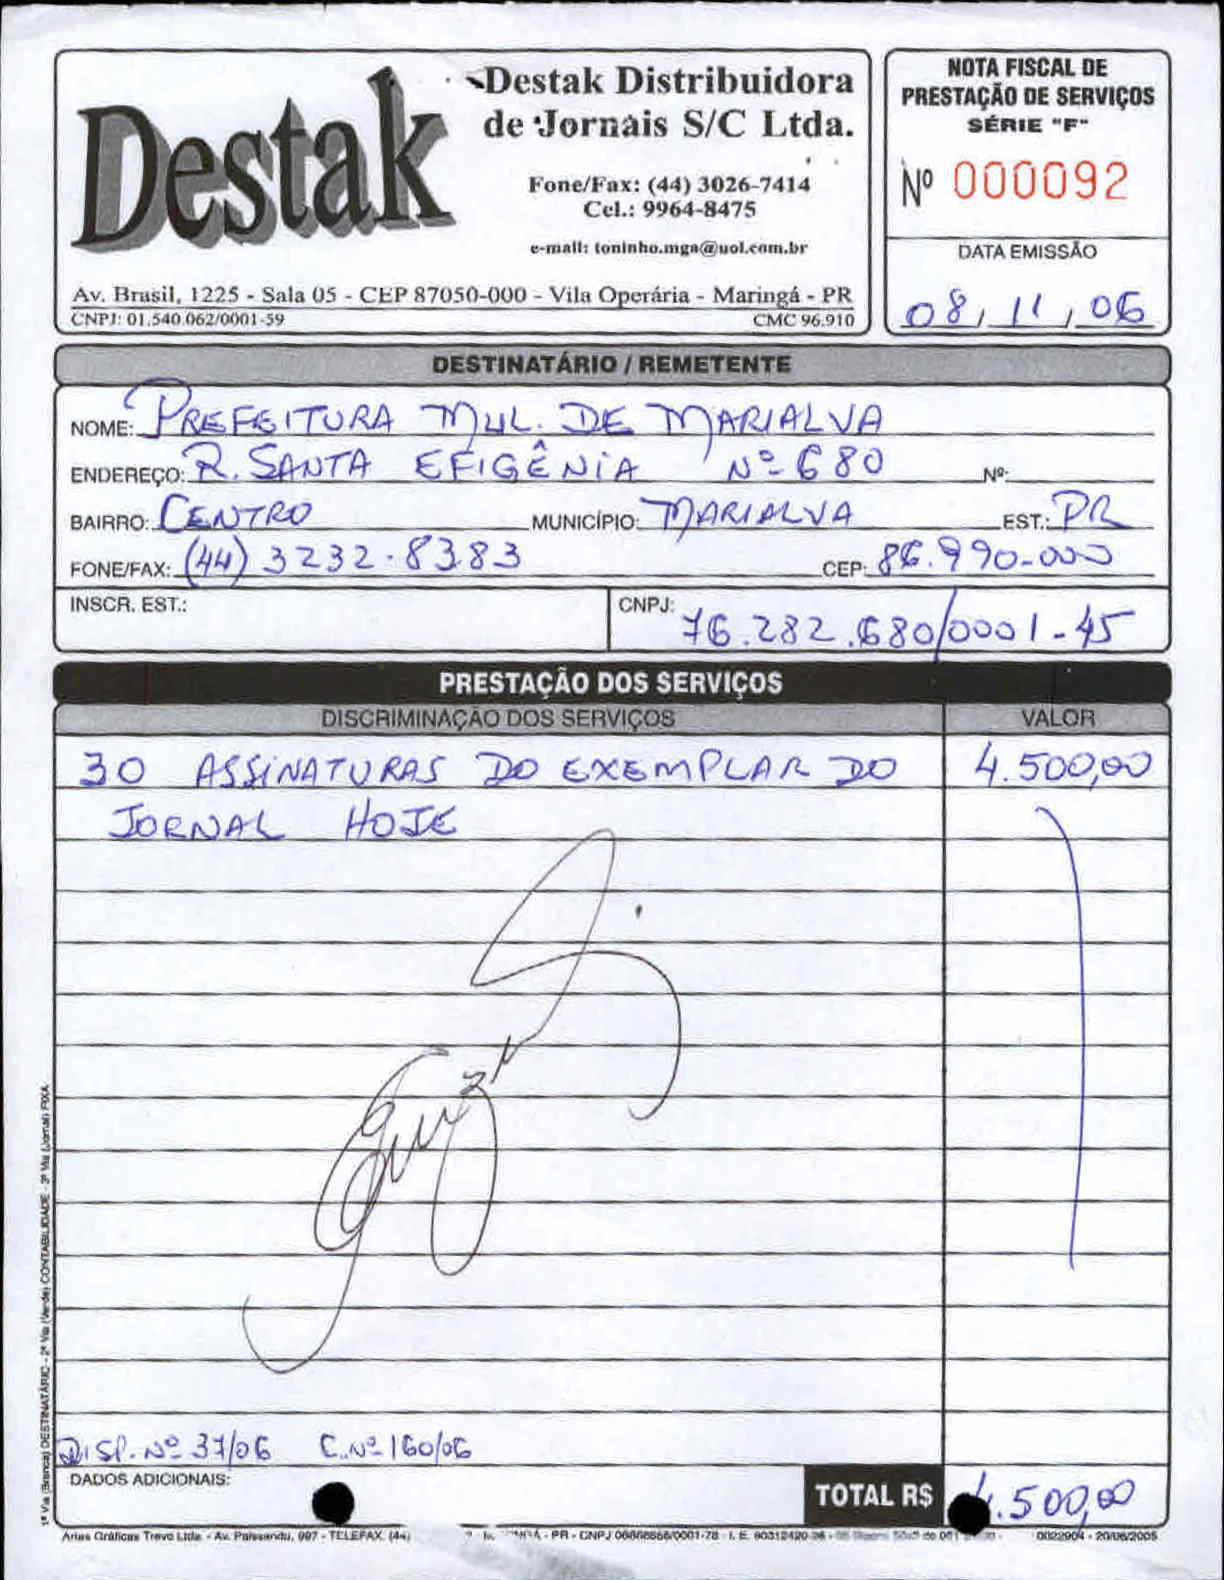 Destak
Destak Distribuidora
de Jornais S/C Ltda.
Fone/Fax: (44) 3026-7414
Cel.: 9964-8475
e-mail: toninho.mga@uol.com.br
Av. Brasil, 1225 - Sala 05 - CEP 87050-000 - Vila Operária - Maringá - PR
CNPJ: 01.540.062/0001-59 CMC 96.910
NOTA FISCAL DE
PRESTAÇÃO DE SERVIÇOS
SÉRIE "F"
Nº 000092
DATA EMISSÃO
08, 11, 06
DESTINATÁRIO / REMETENTE
NOME: PREFEITURA MUL. DE MARIALVA
ENDEREÇO: R. SANTA EFIGÊNIA Nº 680 Nº:
BAIRRO: CENTRO MUNICÍPIO: MARIALVA EST.: PR
FONE/FAX: (44) 3232-8383 CEP: 86.990-000
INSCR. EST.: CNPJ: 76.282.680/0001-45
PRESTAÇÃO DOS SERVIÇOS
DISCRIMINAÇÃO DOS SERVIÇOS VALOR
30 ASSINATURAS DO EXEMPLAR DO 4.500,00
JORNAL HOJE
DISP. Nº 37/06 C. Nº 160/06
DADOS ADICIONAIS:
TOTAL R$ 4.500,00
1ª Via (Branca) DESTINATÁRIO - 2ª Via (Verde) CONTABILIDADE - 3ª Via (Jornal) FIXA
Artes Gráficas Trevo Ltda. - Av. Paissandu, 997 - TELEFAX (44) - PR - CNPJ 0022904 - 20/06/2005